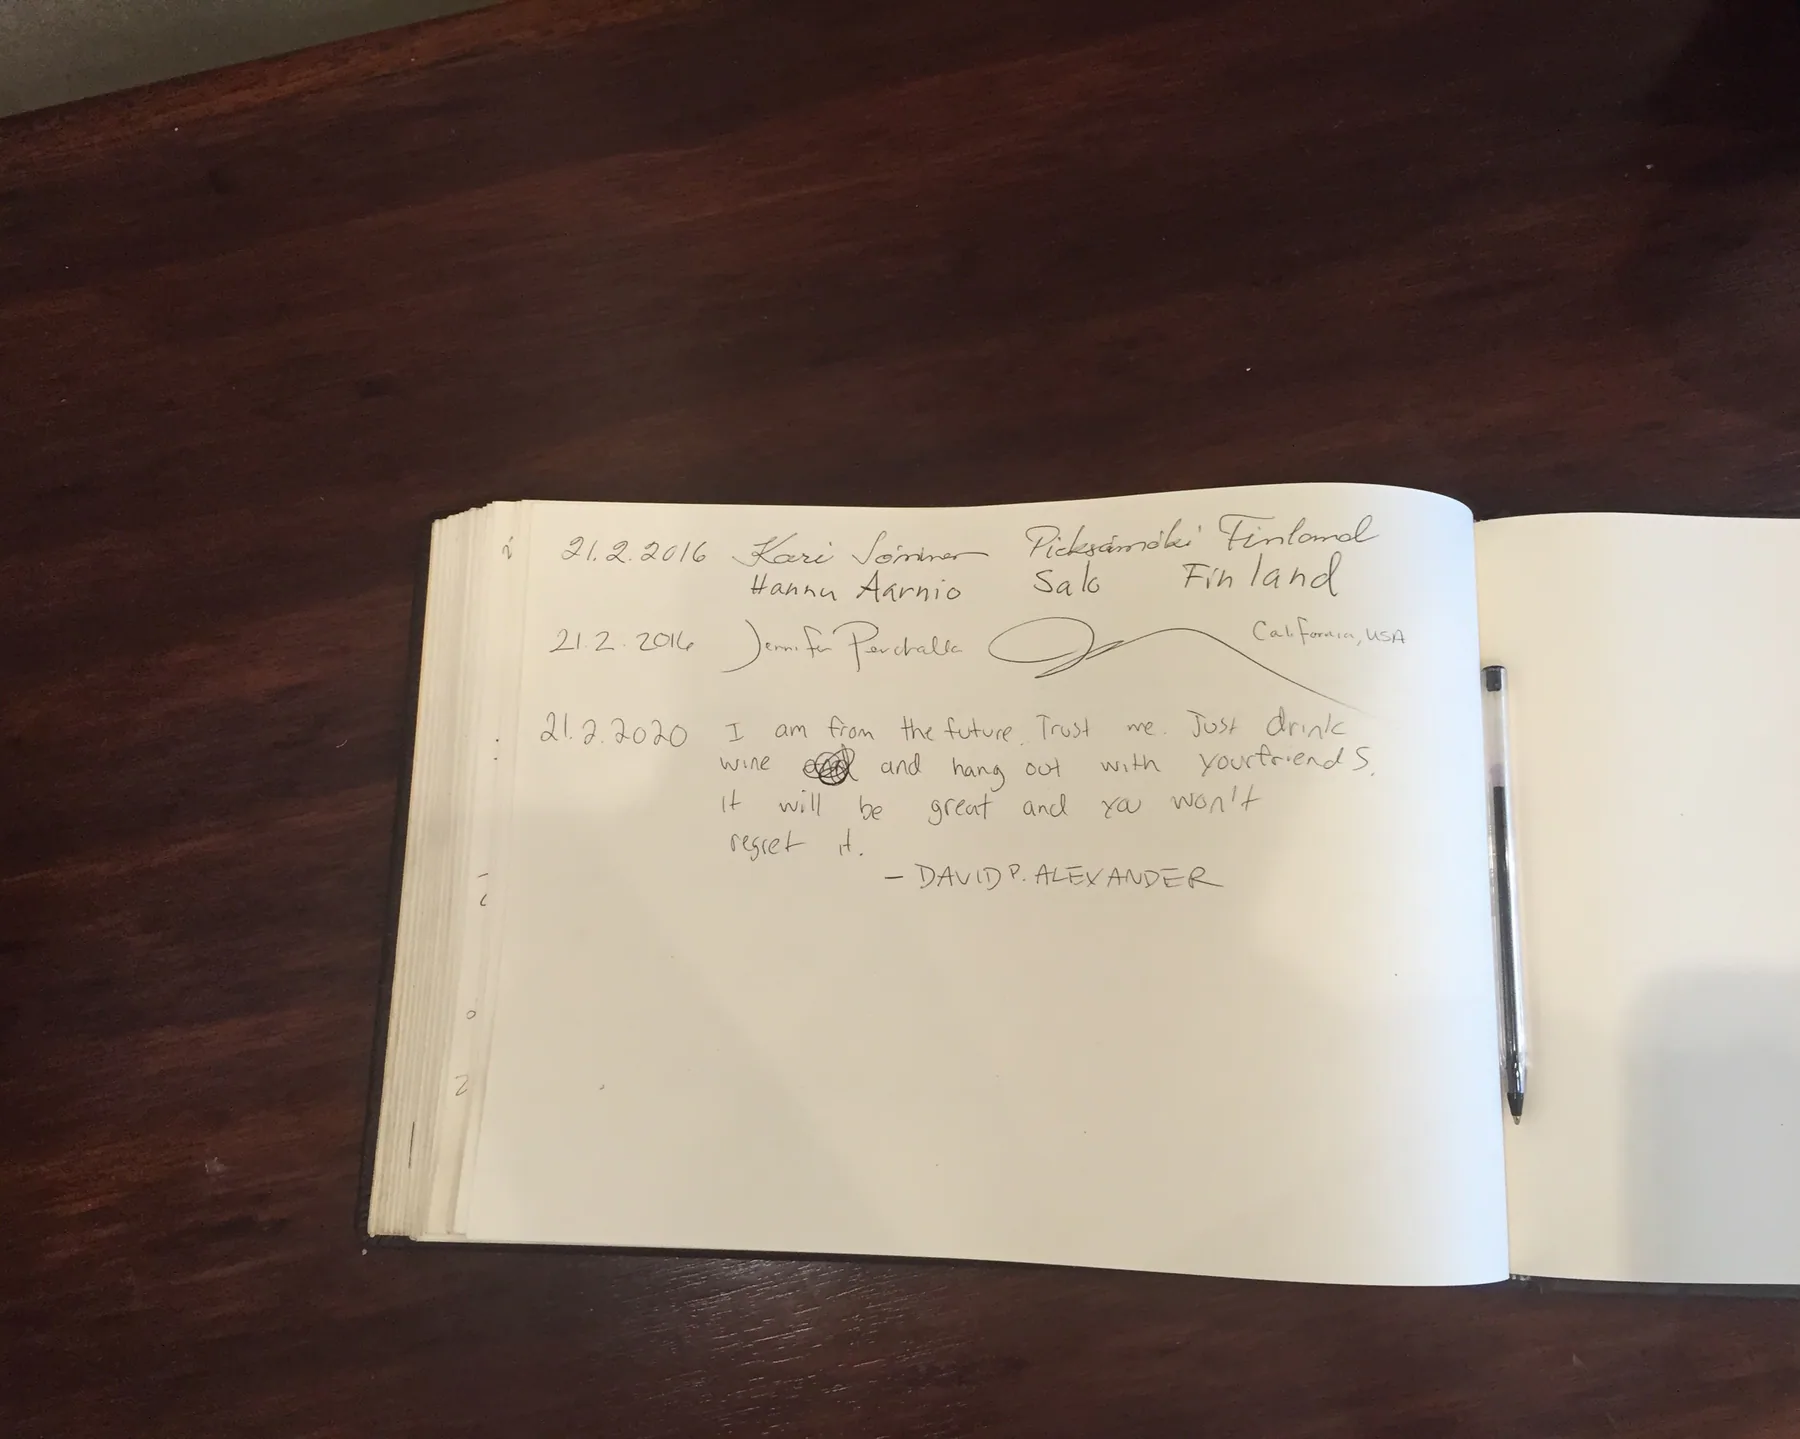 21.2.2016 Kari Pieksämäki Finland
Hannu Aarnio Salo Finland
21.2.2016 Jennifer Perchalla California, USA
21.2.2020 I am from the future. Trust me. Just drink
wine and hang out with your friends.
It will be great and you won't
regret it.
– DAVID P. ALEXANDER